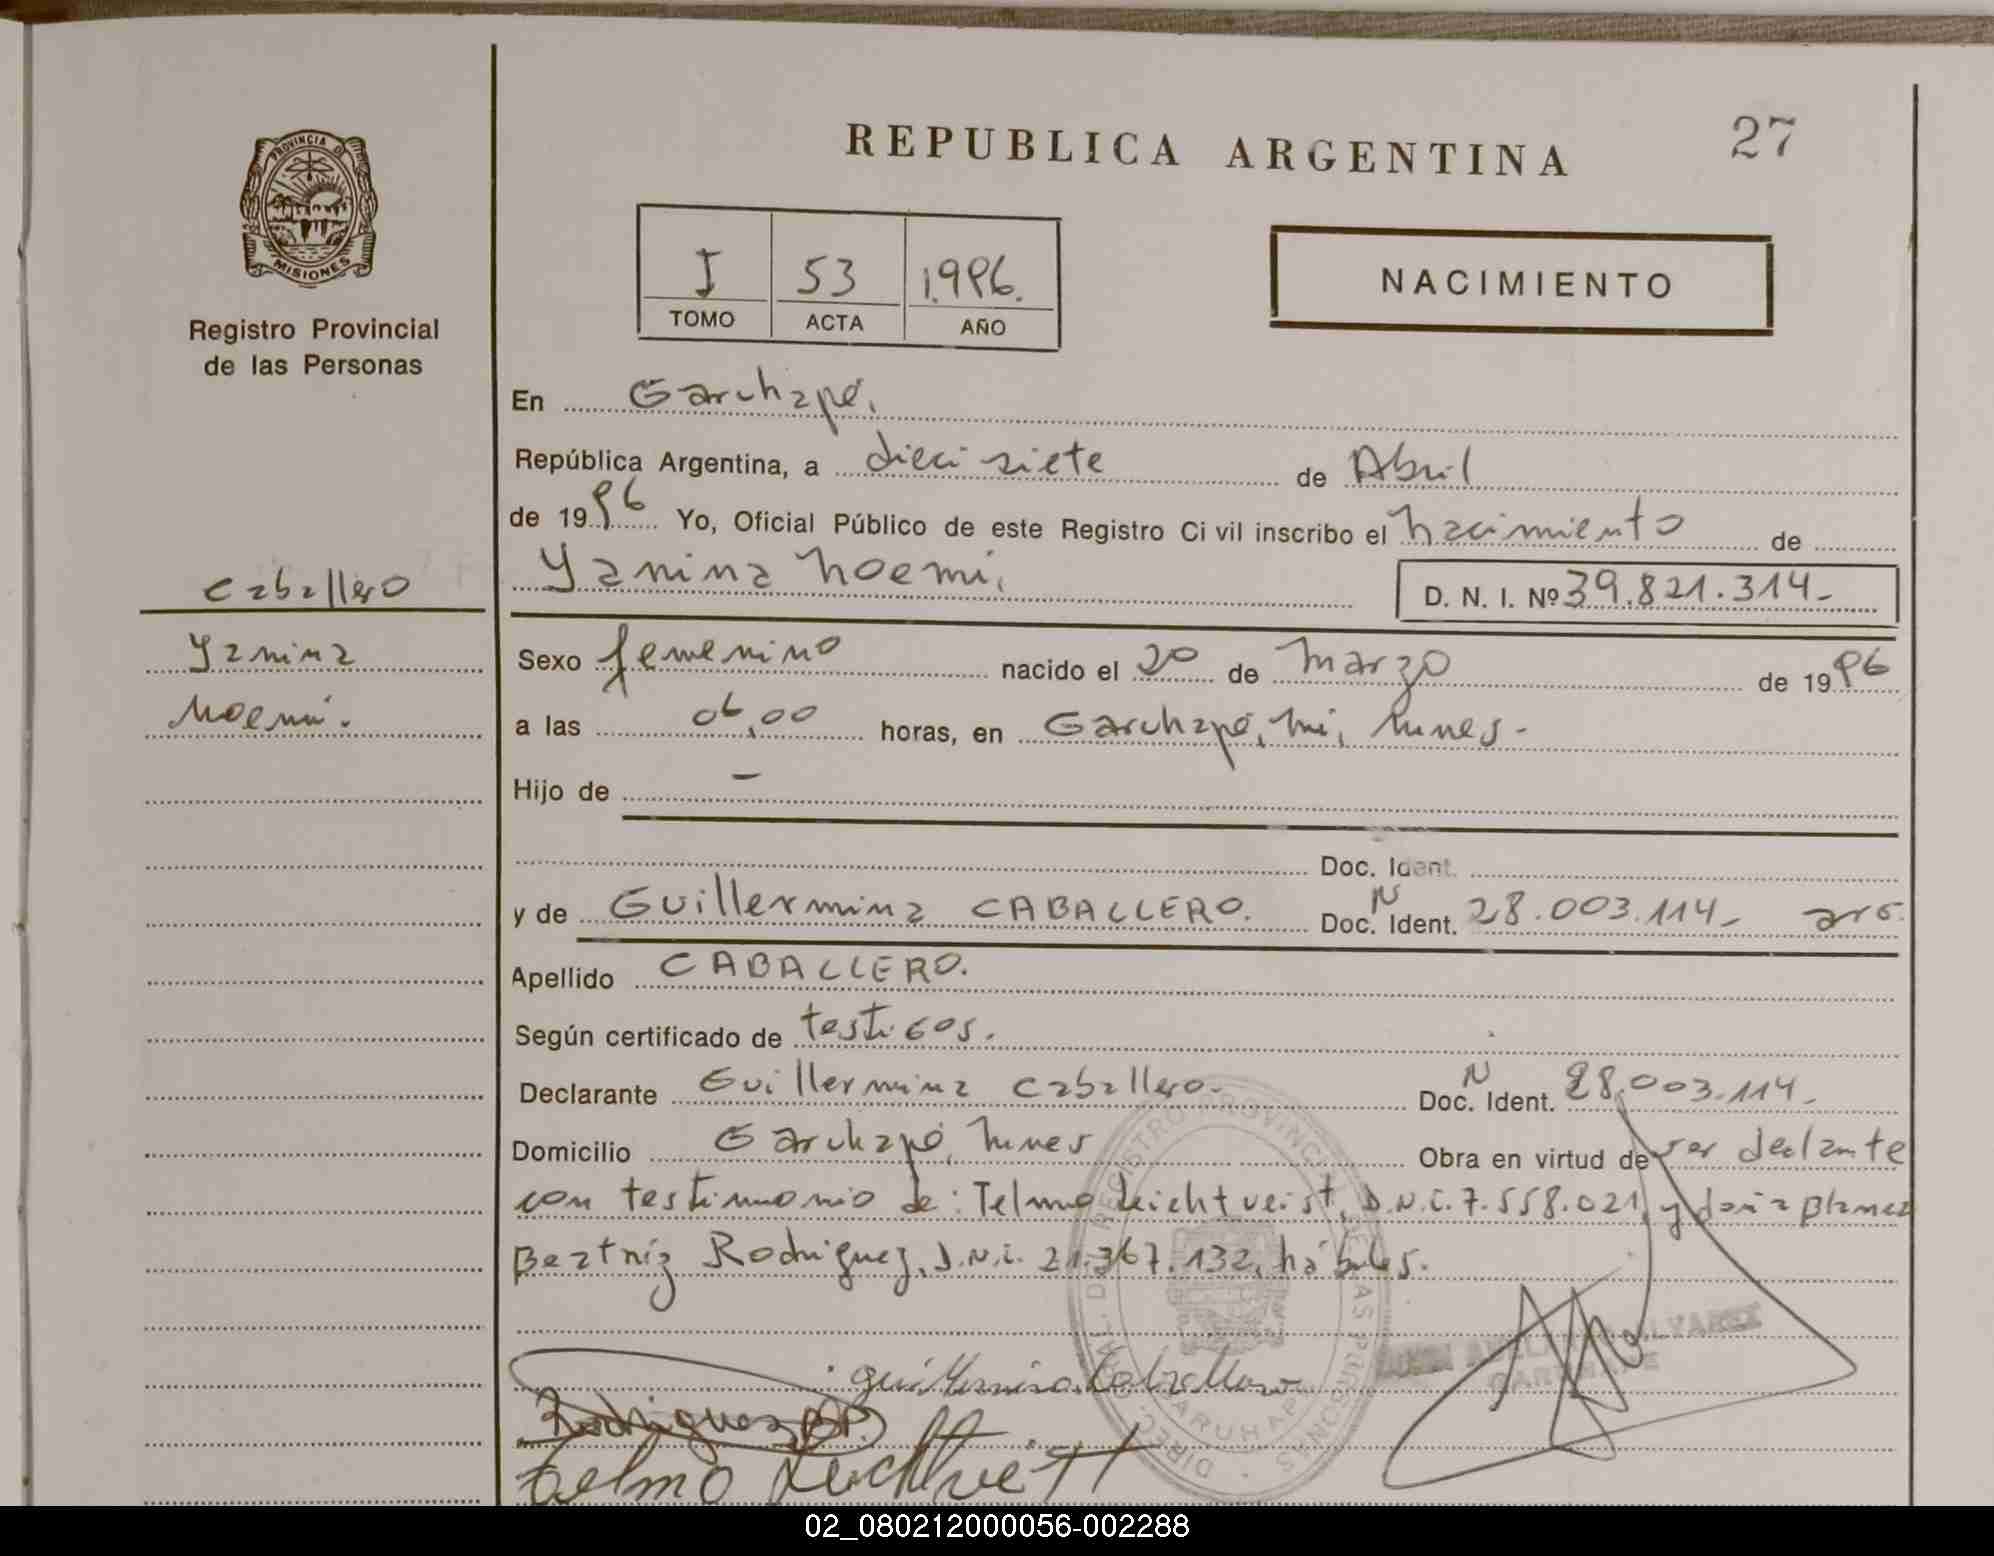 REPUBLICA ARGENTINA
27
PROVINCIA DE
MISIONES
Registro Provincial
de las Personas
I 53 1.996.
TOMO ACTA AÑO
NACIMIENTO
En Garuhapé,
República Argentina, a dieci siete de Abril
de 1996 Yo, Oficial Público de este Registro Civil inscribo el nacimiento de
Yanina Noemi,
D. N. I. Nº 39.821.314-
Caballero
Yanina
Noemi.
Sexo femenino nacido el 20 de Marzo de 1996
a las 06,00 horas, en Garuhapé, Mi,
Hijo de -
Doc. Ident.
y de Guillermina CABALLERO. Doc. N Ident. 28.003.114- arg.
Apellido CABALLERO.
Según certificado de testigos.
Declarante Guillermina Caballero. Doc. N Ident. 28.003.114-
Domicilio Garuhapé, Obra en virtud de ser declante
con testimonio de: Telmo Leichtveist, D.N.i. 7.558.021, y doña Blanca
Beatriz Rodriguez, D.N.i. 21.367.132, hábiles.
Guillermina Caballero
ALVAREZ
GARUHAPE
DIREC. GRAL. DEL REGISTRO PROVINCIAL DE LAS PERSONAS
GARUHAPE
Rodriguez B P.
Telmo
02_080212000056-002288